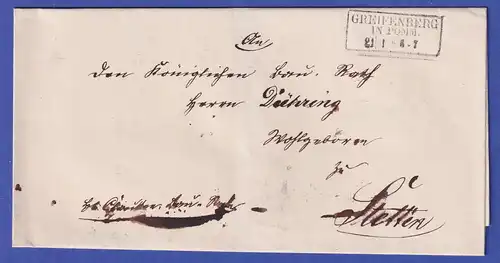 GREIFENBERG
IN POMM.
21 1 6-7
An
den Königlichen Bau-Rath
Herrn Döhring
Wohlgeboren
zu
Stettin